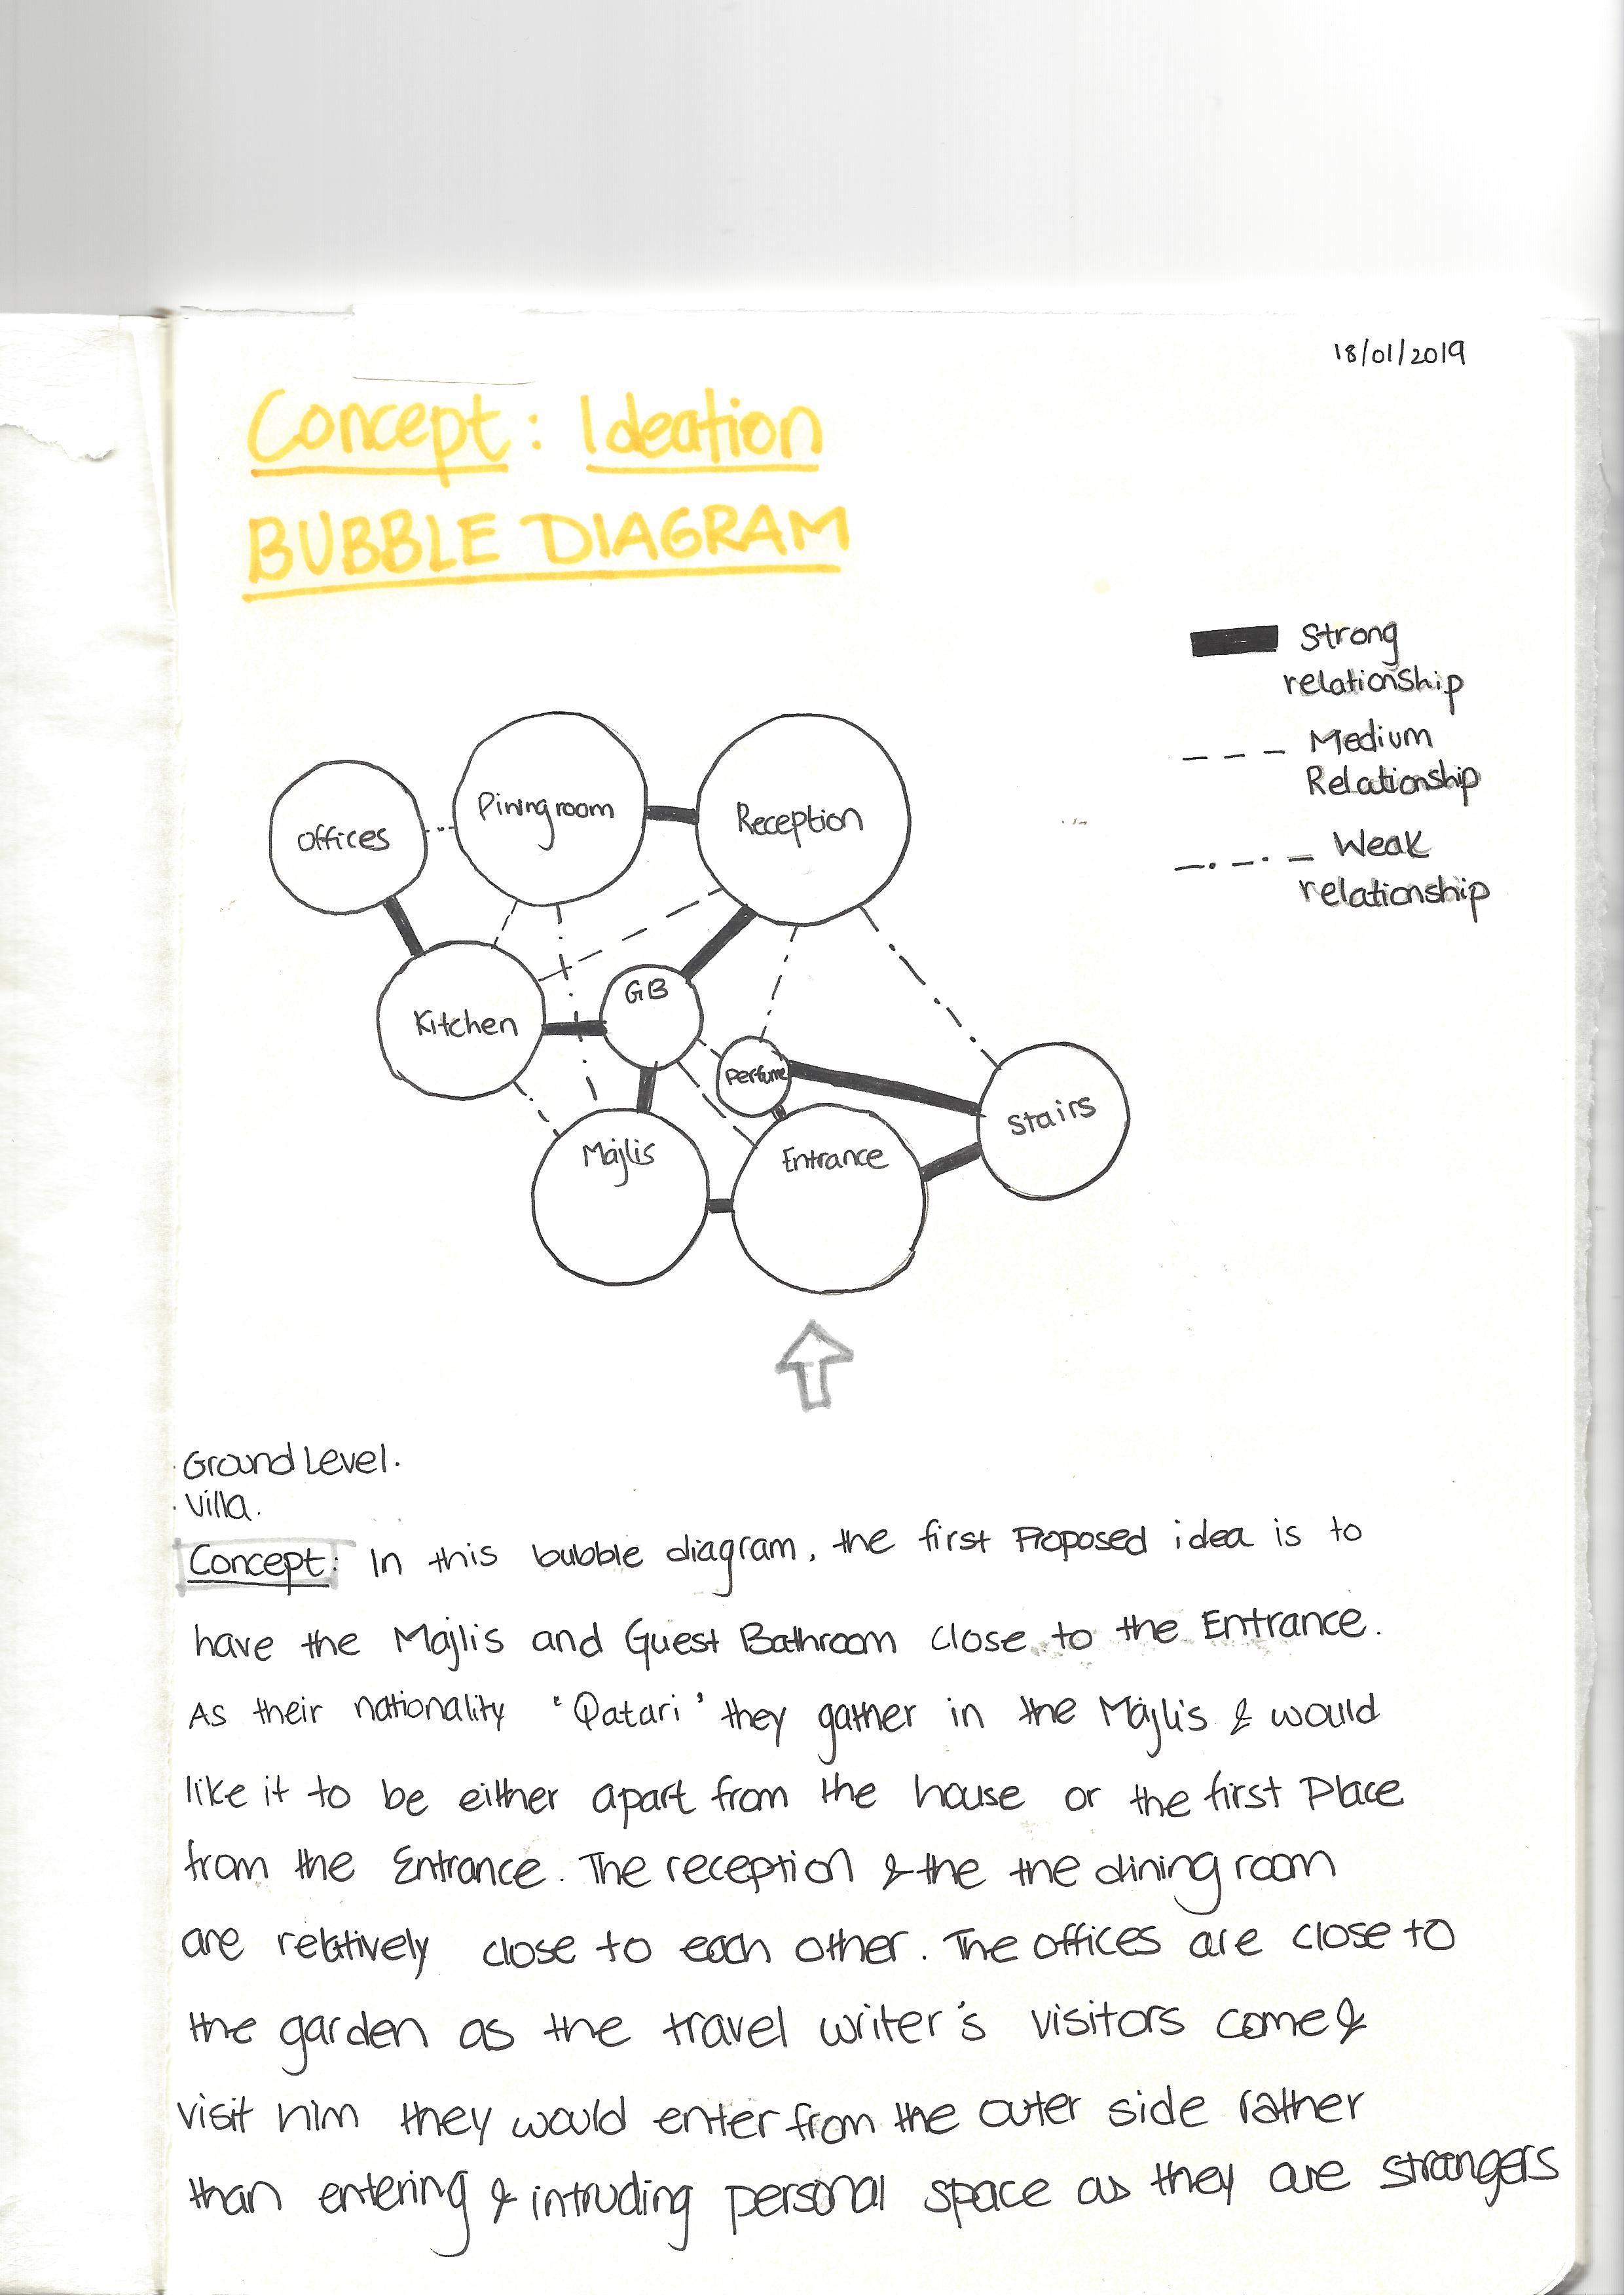 18/01/2019
Concept: Ideation
BUBBLE DIAGRAM
Strong
relationship
Medium
Relationship
Weak
relationship
Offices
Diningroom
Reception
Kitchen
GB
Perfume
Stairs
Majlis
Entrance
· Ground Level.
· Villa.
Concept: In this bubble diagram, the first Proposed idea is to
have the Majlis and Guest Bathroom close to the Entrance.
As their nationality 'Qatari' they gather in the Majlis & would
like it to be either apart from the house or the first Place
from the Entrance. The reception & the the dining room
are relatively close to each other. The offices are close to
the garden as the travel writer's visitors come &
visit him they would enter from the outer side rather
than entering & intruding personal space as they are strangers